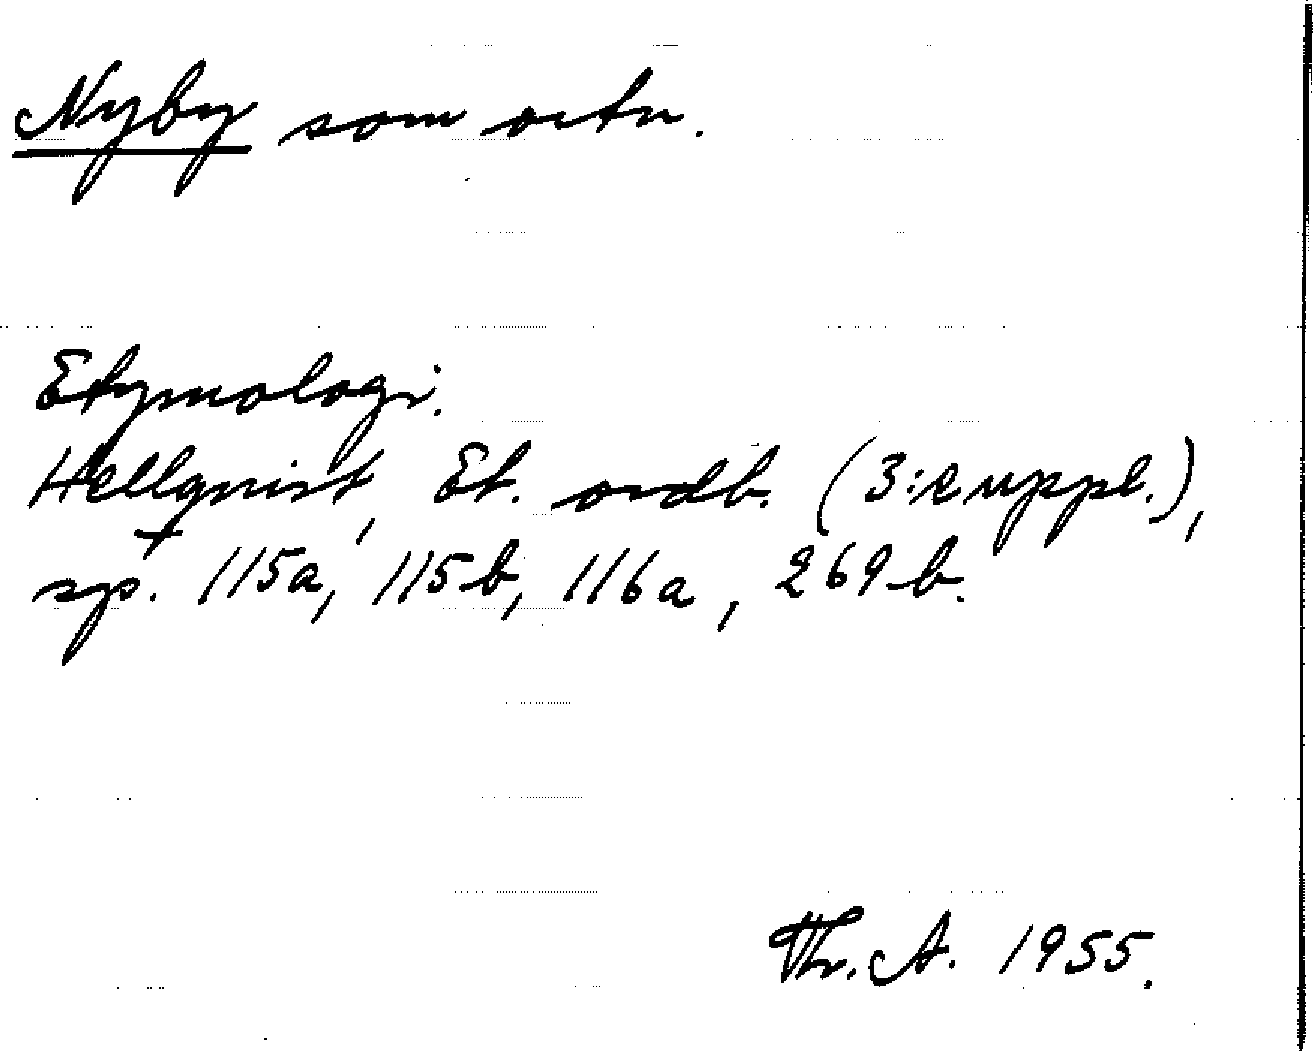 Nyby som ortn.
Etymologi.
Hellqvist, Et. ordb. (3:e uppl.),
sp. 115a, 115b, 116a, 269b.
Th. A. 1955.